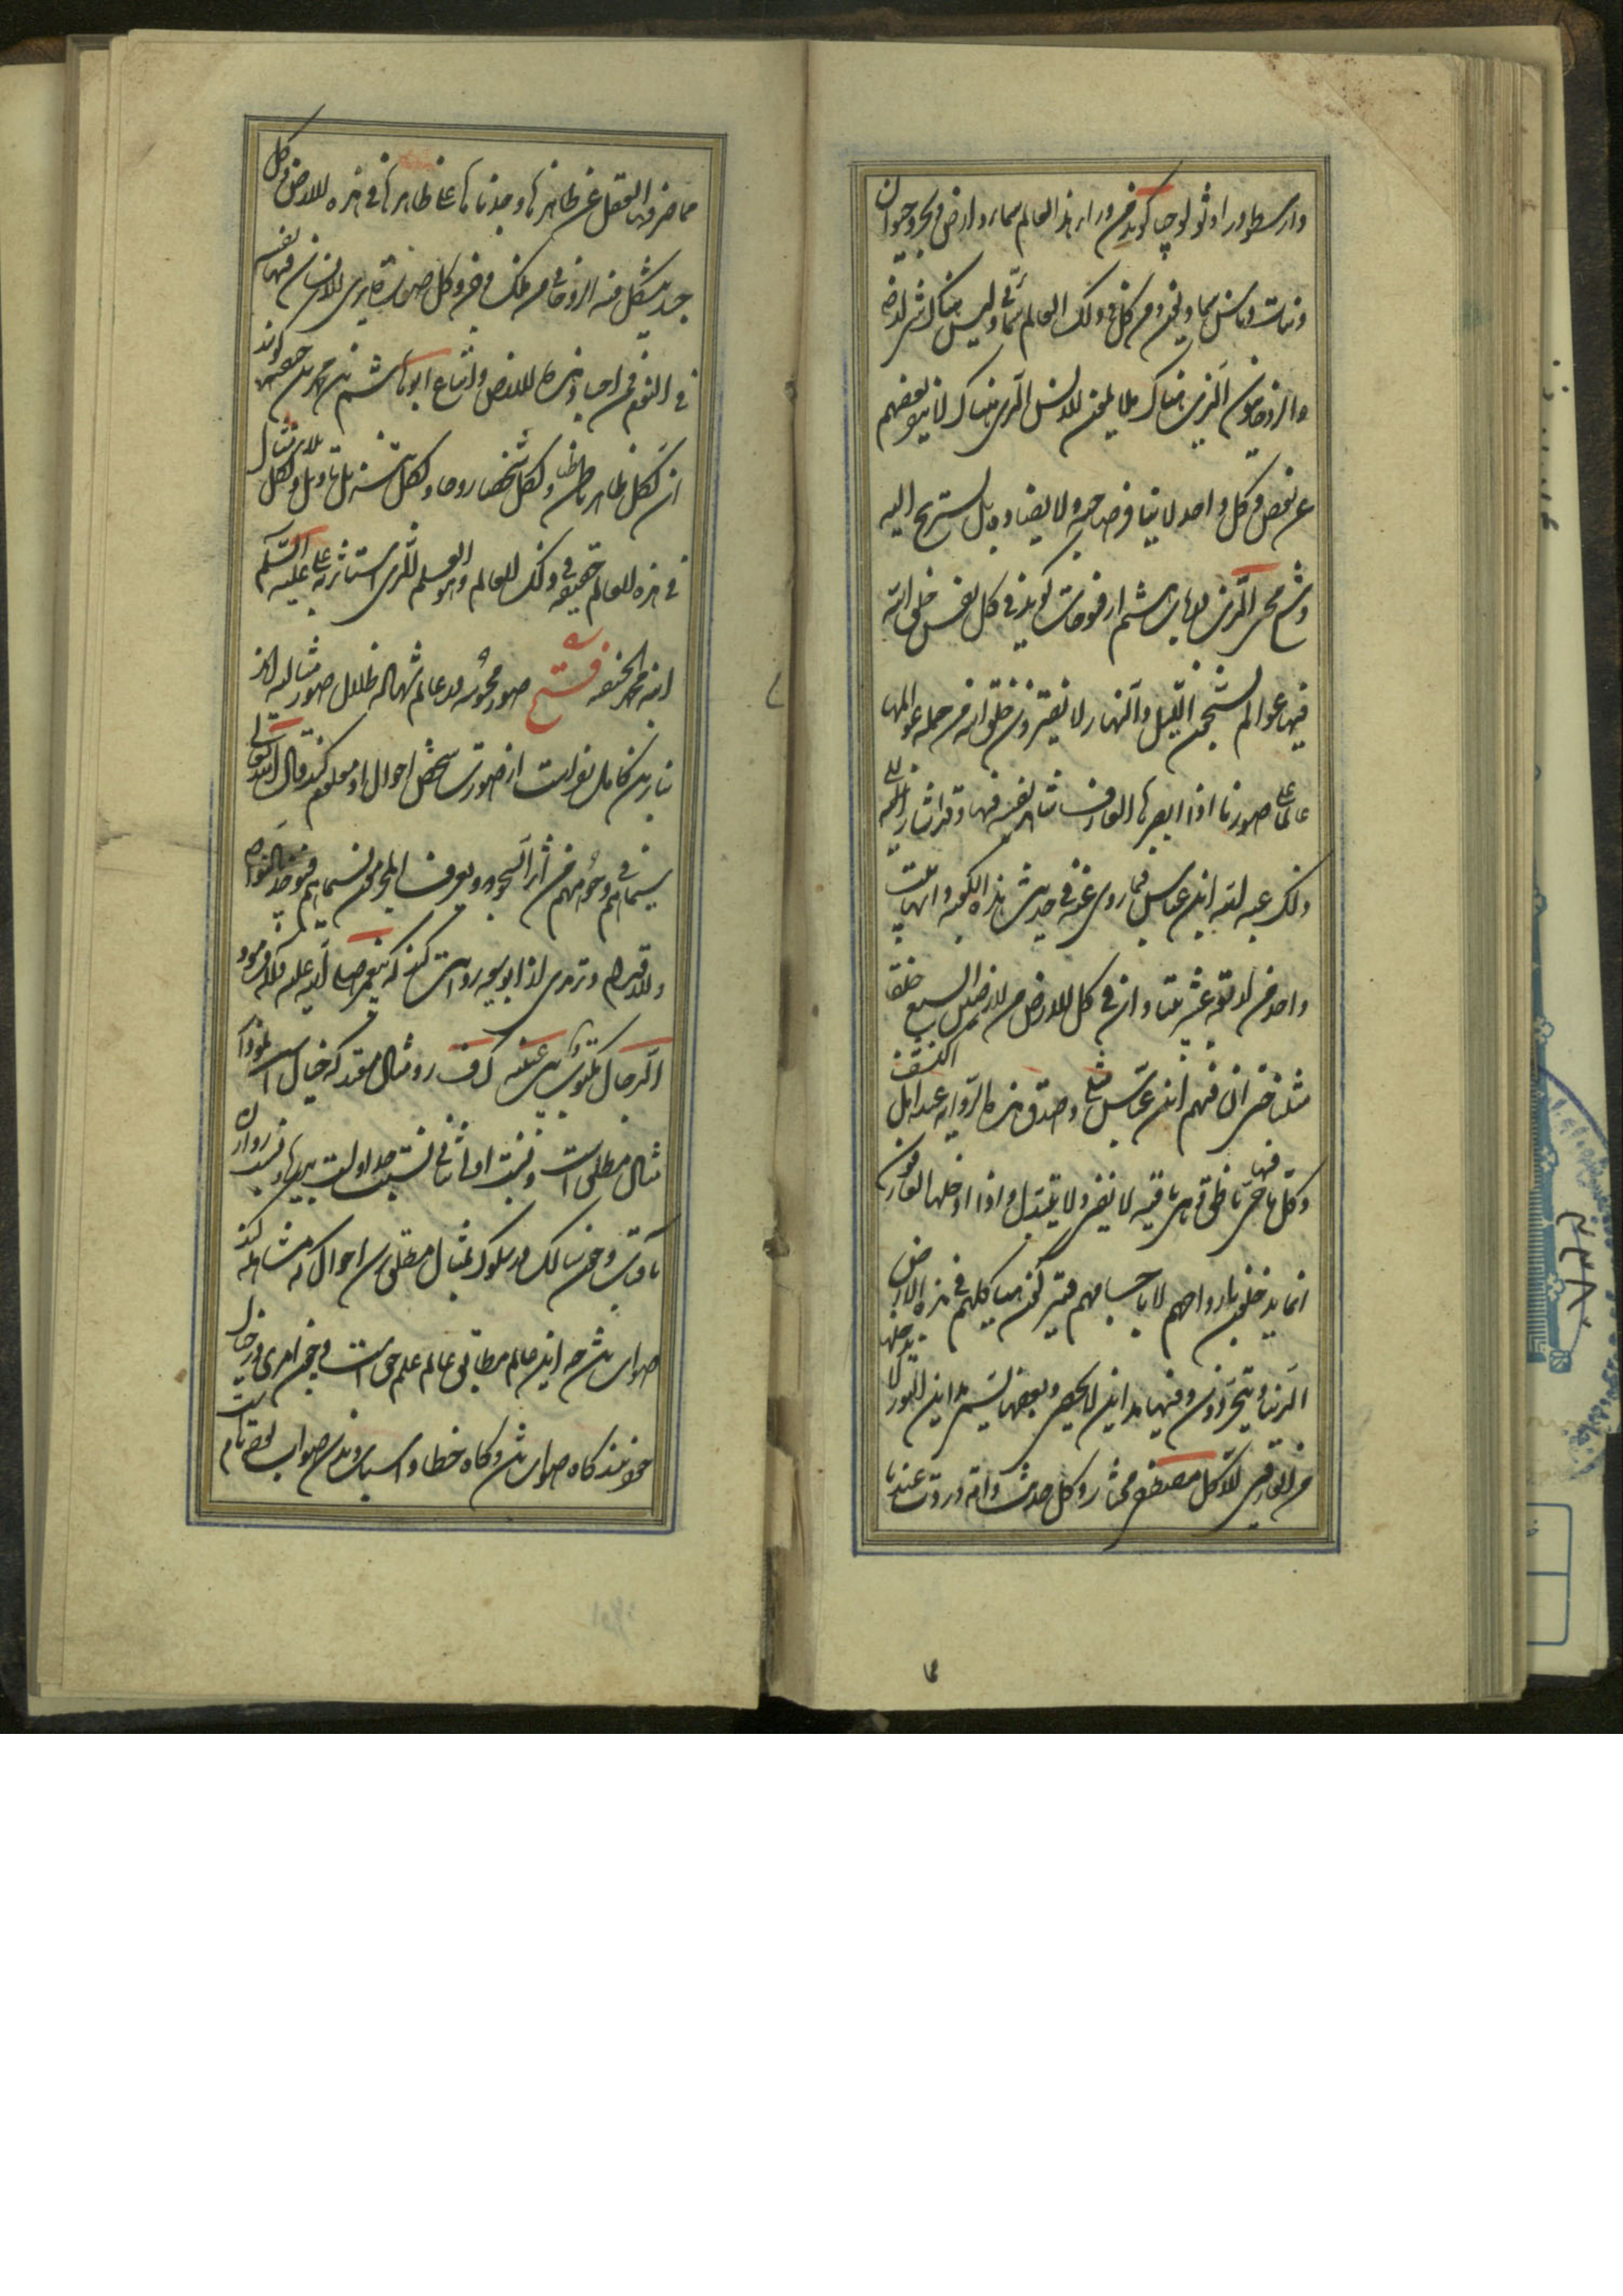 وارسطو در اوثولوجیا کوید من وراء هذا العالم سماء وارض وبحر وحیوان
ونبات وناس سماویون وکل من فی ذلک العالم سمائی ولیس هناک شیء ارضی
والروحانیون الذین هناک ملایمون للانس الذی هناک لا ینفر بعضهم
عن بعض وکل واحد لا ینافر صاحبه ولا یضاده بل یستریح الیه
وشیخ محیی الدین در باب هشتم از فتوحات کوید فی کل نفس خلق الله
فیها عوالم یسبحون اللیل والنهار لا یفترون وخلق الله من جملة عوالمها
عالما علی صورنا اذا ابصرها العارف شاهد نفسه فیها وقد اشار الی مثل
ذلک عبد الله ابن عباس فیما روی عنه فی حدیث هذه الکعبة وانها بیت
واحد من اربعة عشر بیتا وان فی کل ارض من الارضین السبع خلقا
مثلنا حتی ان فیهم ابن عباس مثلی وصدقت هذه الروایة عند اهل الکشف
وکل ما فیها حی ناطق وهی باقیة لا تفنی ولا تتبدل واذا دخلها العارفون
انما یدخلون بارواحهم لا باجسامهم فیترکون هیاکلهم فی هذه الارض
الدنیا ویتجردون وفیها مداین لا تحصی وبعضها یسمی مداین النور لا یدخلها
من العارفین الا کل مصطفی مختار وکل حدیث وآیة وردت عندنا
مما صرفها العقل عن ظاهرها وجدناها علی ظاهرها فی هذه الارض وکل
جسد یتشکل فیه الروحانی من ملک وجن وکل صورة یری الانسان فیها نفسه
فی النوم فمن اجساد هذه الارض واتباع ابو هاشم بن محمد بن حنفیه کویند
ان لکل ظاهر باطنا ولکل شخص روحا ولکل تنزیل تأویل ولکل مثال
فی هذه العالم حقیقة فی ذلک العالم وهو العلم الذی استأثر به علی علیه السلم
ابنه محمد الحنفیه فتح صور محسوسه در عالم شهاده ظلال صور مثالیه اند
بنابرین کامل بفراست از صورت شخص احوال او معلوم کند قال الله تعالی
سیماهم فی وجوههم من اثر السجود ویعرف المجرمون بسیماهم فیؤخذ بالنواصی
والاقدام وترمذی از ابو هریره روایت کند که پیغمبر صلی الله علیه وآله فرمود
الدجال مکتوب بین عینیه ک ف ر ومثال مقید که خیال است انموذج
مثال مطلق است ونسبت او با ثانی نسبت جداول است بنهرها وفسد روازن
بآفتاب وچون سالک در سلوک بمثال مطلق رسد احوال که مشاهده کند
صواب باشد چه این عالم مطابق عالم علم حق است وچون امری در خیال
خود بیند کاه صواب باشد وکاه خطا واسباب دیدن صواب بعضی تام است
مما